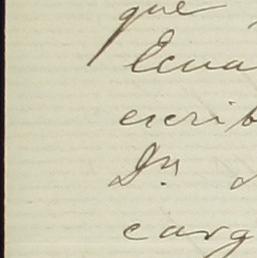 que
Ecua
escrib
Dn.
carg